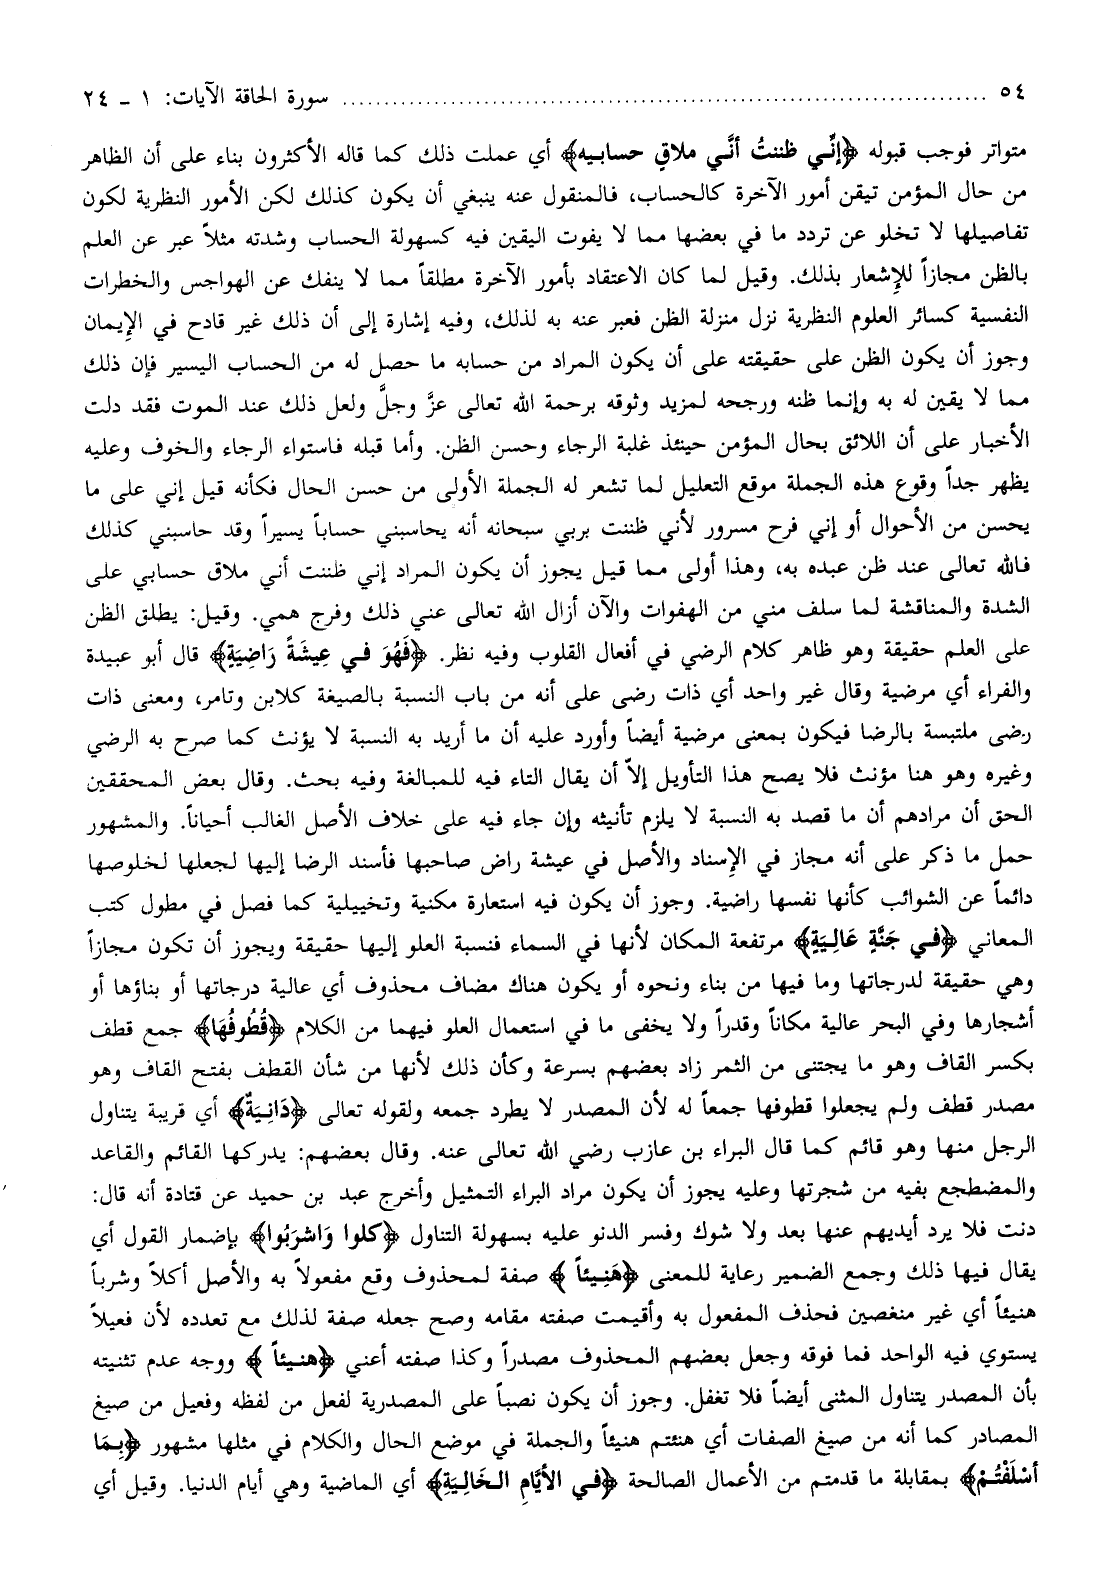 ٥٤ ........................................................................................ سورة الحاقة الآيات: ١ - ٢٤
متواتر فوجب قبوله ﴿إنِّي ظننتُ أنَّي ملاقٍ حسابيه﴾ أي عملت ذلك كما قاله الأكثرون بناء على أن الظاهر
من حال المؤمن تيقن أمور الآخرة كالحساب، فالمنقول عنه ينبغي أن يكون كذلك لكن الأمور النظرية لكون
تفاصيلها لا تخلو عن تردد ما في بعضها مما لا يفوت اليقين فيه كسهولة الحساب وشدته مثلاً عبر عن العلم
بالظن مجازاً للإشعار بذلك. وقيل لما كان الاعتقاد بأمور الآخرة مطلقاً مما لا ينفك عن الهواجس والخطرات
النفسية كسائر العلوم النظرية نزل منزلة الظن فعبر عنه به لذلك، وفيه إشارة إلى أن ذلك غير قادح في الإيمان
وجوز أن يكون الظن على حقيقته على أن يكون المراد من حسابه ما حصل له من الحساب اليسير فإن ذلك
مما لا يقين له به وإنما ظنه ورجحه لمزيد وثوقه برحمة الله تعالى عزَّ وجلَّ ولعل ذلك عند الموت فقد دلت
الأخبار على أن اللائق بحال المؤمن حينئذ غلبة الرجاء وحسن الظن. وأما قبله فاستواء الرجاء والخوف وعليه
يظهر جداً وقوع هذه الجملة موقع التعليل لما تشعر له الجملة الأولى من حسن الحال فكأنه قيل إني على ما
يحسن من الأحوال أو إني فرح مسرور لأني ظننت بربي سبحانه أنه يحاسبني حساباً يسيراً وقد حاسبني كذلك
فالله تعالى عند ظن عبده به، وهذا أولى مما قيل يجوز أن يكون المراد إني ظننت أني ملاق حسابي على
الشدة والمناقشة لما سلف مني من الهفوات والآن أزال الله تعالى عني ذلك وفرج همي. وقيل: يطلق الظن
على العلم حقيقة وهو ظاهر كلام الرضي في أفعال القلوب وفيه نظر. ﴿فَهُوَ في عِيشَةً رَاضِيَةٍ﴾ قال أبو عبيدة
والفراء أي مرضية وقال غير واحد أي ذات رضى على أنه من باب النسبة بالصيغة كلابن وتامر، ومعنى ذات
رضى ملتبسة بالرضا فيكون بمعنى مرضية أيضاً وأورد عليه أن ما أريد به النسبة لا يؤنث كما صرح به الرضي
وغيره وهو هنا مؤنث فلا يصح هذا التأويل إلاّ أن يقال التاء فيه للمبالغة وفيه بحث. وقال بعض المحققين
الحق أن مرادهم أن ما قصد به النسبة لا يلزم تأنيثه وإن جاء فيه على خلاف الأصل الغالب أحياناً. والمشهور
حمل ما ذكر على أنه مجاز في الإسناد والأصل في عيشة راض صاحبها فأسند الرضا إليها لجعلها لخلوصها
دائماً عن الشوائب كأنها نفسها راضية. وجوز أن يكون فيه استعارة مكنية وتخييلية كما فصل في مطول كتب
المعاني ﴿في جَنَّةٍ عَالِيَةٍ﴾ مرتفعة المكان لأنها في السماء فنسبة العلو إليها حقيقة ويجوز أن تكون مجازاً
وهي حقيقة لدرجاتها وما فيها من بناء ونحوه أو يكون هناك مضاف محذوف أي عالية درجاتها أو بناؤها أو
أشجارها وفي البحر عالية مكاناً وقدراً ولا يخفى ما في استعمال العلو فيهما من الكلام ﴿قُطُوفُهَا﴾ جمع قطف
بكسر القاف وهو ما يجتنى من الثمر زاد بعضهم بسرعة وكأن ذلك لأنها من شأن القطف بفتح القاف وهو
مصدر قطف ولم يجعلوا قطوفها جمعاً له لأن المصدر لا يطرد جمعه ولقوله تعالى ﴿دَانِيَةٌ﴾ أي قريبة يتناول
الرجل منها وهو قائم كما قال البراء بن عازب رضي الله تعالى عنه. وقال بعضهم: يدركها القائم والقاعد
والمضطجع بفيه من شجرتها وعليه يجوز أن يكون مراد البراء التمثيل وأخرج عبد بن حميد عن قتادة أنه قال:
دنت فلا يرد أيديهم عنها بعد ولا شوك وفسر الدنو عليه بسهولة التناول ﴿كلوا وَاشرَبُوا﴾ بإضمار القول أي
يقال فيها ذلك وجمع الضمير رعاية للمعنى ﴿هَنِيئاً﴾ صفة لمحذوف وقع مفعولاً به والأصل أكلاً وشرباً
هنيئاً أي غير منغصين فحذف المفعول به وأقيمت صفته مقامه وصح جعله صفة لذلك مع تعدده لأن فعيلاً
يستوي فيه الواحد فما فوقه وجعل بعضهم المحذوف مصدراً وكذا صفته أعني ﴿هنيئاً﴾ ووجه عدم تثنيته
بأن المصدر يتناول المثنى أيضاً فلا تغفل. وجوز أن يكون نصباً على المصدرية لفعل من لفظه وفعيل من صيغ
المصادر كما أنه من صيغ الصفات أي هنئتم هنيئاً والجملة في موضع الحال والكلام في مثلها مشهور ﴿بِمَا
أَسْلَفْتُمْ﴾ بمقابلة ما قدمتم من الأعمال الصالحة ﴿في الأيَّامِ الخَالِيَةِ﴾ أي الماضية وهي أيام الدنيا. وقيل أي